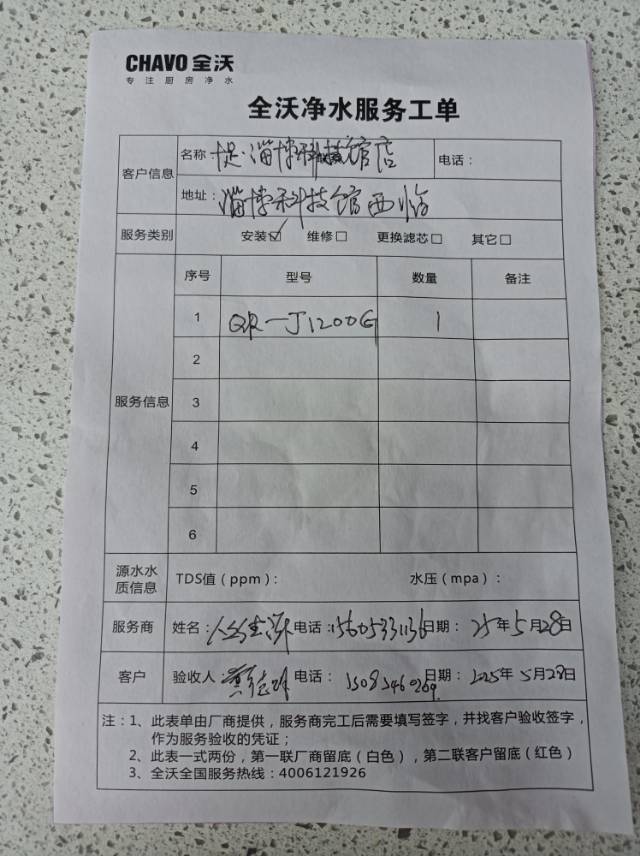 CHAVO 全沃
专注厨房净水
全沃净水服务工单
客户信息
名称 淄博科技馆店 电话：
地址： 淄博科技馆西临
服务类别 安装☑ 维修□ 更换滤芯□ 其它□
服务信息
序号 型号 数量 备注
1 QR-J1200G 1
2
3
4
5
6
源水水质信息 TDS值（ppm）： 水压（mpa）：
服务商 姓名： 电话：15605331136 日期： 25年5月28日
客户 验收人 电话： 日期： 2025年5月28日
注：1、此表单由厂商提供，服务商完工后需要填写签字，并找客户验收签字，
作为服务验收的凭证；
2、此表一式两份，第一联厂商留底（白色），第二联客户留底（红色）
3、全沃全国服务热线：4006121926